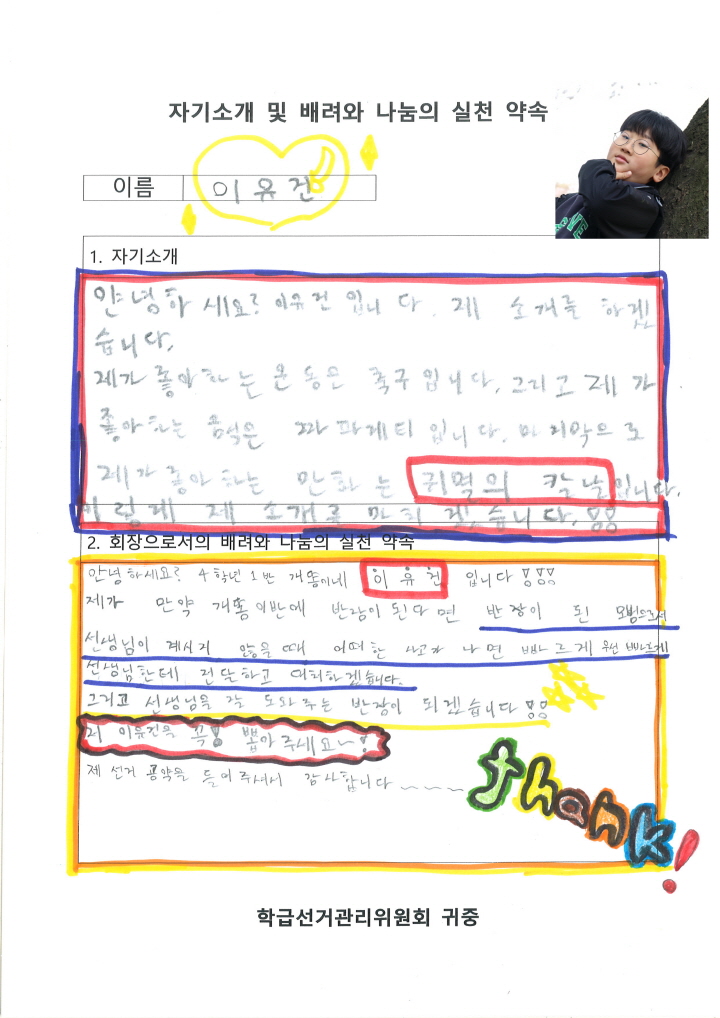 자기소개 및 배려와 나눔의 실천 약속
이름 이유건
1. 자기소개
안녕하세요? 이유건 입니다. 제 소개를 하겠
습니다.
제가 좋아하는 운동은 축구입니다. 그리고 제가
좋아하는 음식은 짜파게티 입니다. 마지막으로
제가 좋아하는 만화는 귀멸의 칼날입니다.
이렇게 제 소개로 마치겠습니다.!!
2. 회장으로서의 배려와 나눔의 실천 약속
안녕하세요? 4학년 1반 개똥이네 이유건 입니다!!!
제가 만약 이반에 반장이 된다면 반장이 된 모범으로서
선생님이 계시지 않을 때 어떠한 사고가 나면 빠르게 우선 빠르게
선생님한테 전달하고 대처하겠습니다.
그리고 선생님을 잘 도와주는 반장이 되겠습니다!!
저 이유건을 꼭! 뽑아주세요~!
제 선거 공약을 들어주셔서 감사합니다~~~~
thank!
학급선거관리위원회 귀중